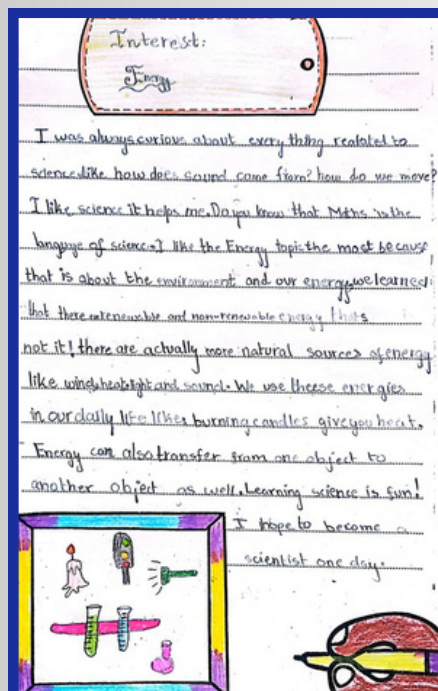 Interest:
Energy
I was always curious about every thing realated to
science. Like how does sound come from? how do we move?
I like science it helps me. Do you know that Maths is the
language of science. I like the Energy topic the most because
that is about the environment and our energy. we learned
that there are renewable and non-renewable energy thats
not it! there are actually more natural sources of energy
like wind, heat, light and sound. We use theese energies
in our daily life like, burning candles give you heat.
Energy can also transfer from one object to
another object as well. Learning science is fun!
I hope to become a
scientist one day.